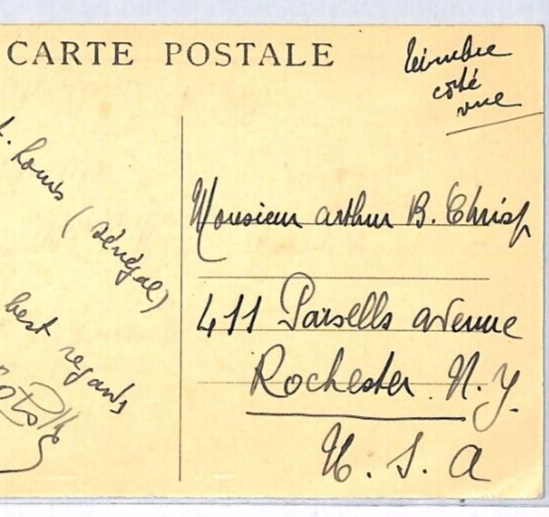 CARTE POSTALE
timbre
côté
vue
t. Louis
(Sénégal)
best regards
Monsieur arthur B. Chrisp
411 Parsells avenue
Rochester. N. Y.
U. S. A